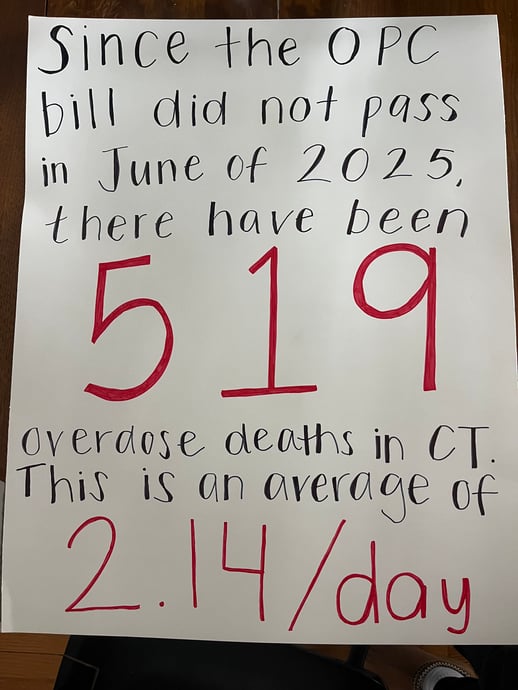 Since the OPC
bill did not pass
in June of 2025,
there have been
519
overdose deaths in CT.
This is an average of
2.14/day